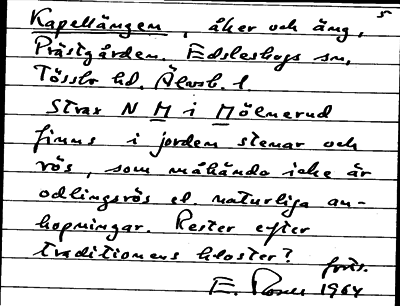 5
Kapellängen, åker och äng,
Prästgården. Edsleskogs sn,
Tössbo hd. Älvsb. l.
Strax N M i Mölnerud
finns i jorden stenar och
rös, som måhända icke är
odlingsrös el. naturliga an-
hopningar. Rester efter
traditionens kloster?
forts.
E. 1964